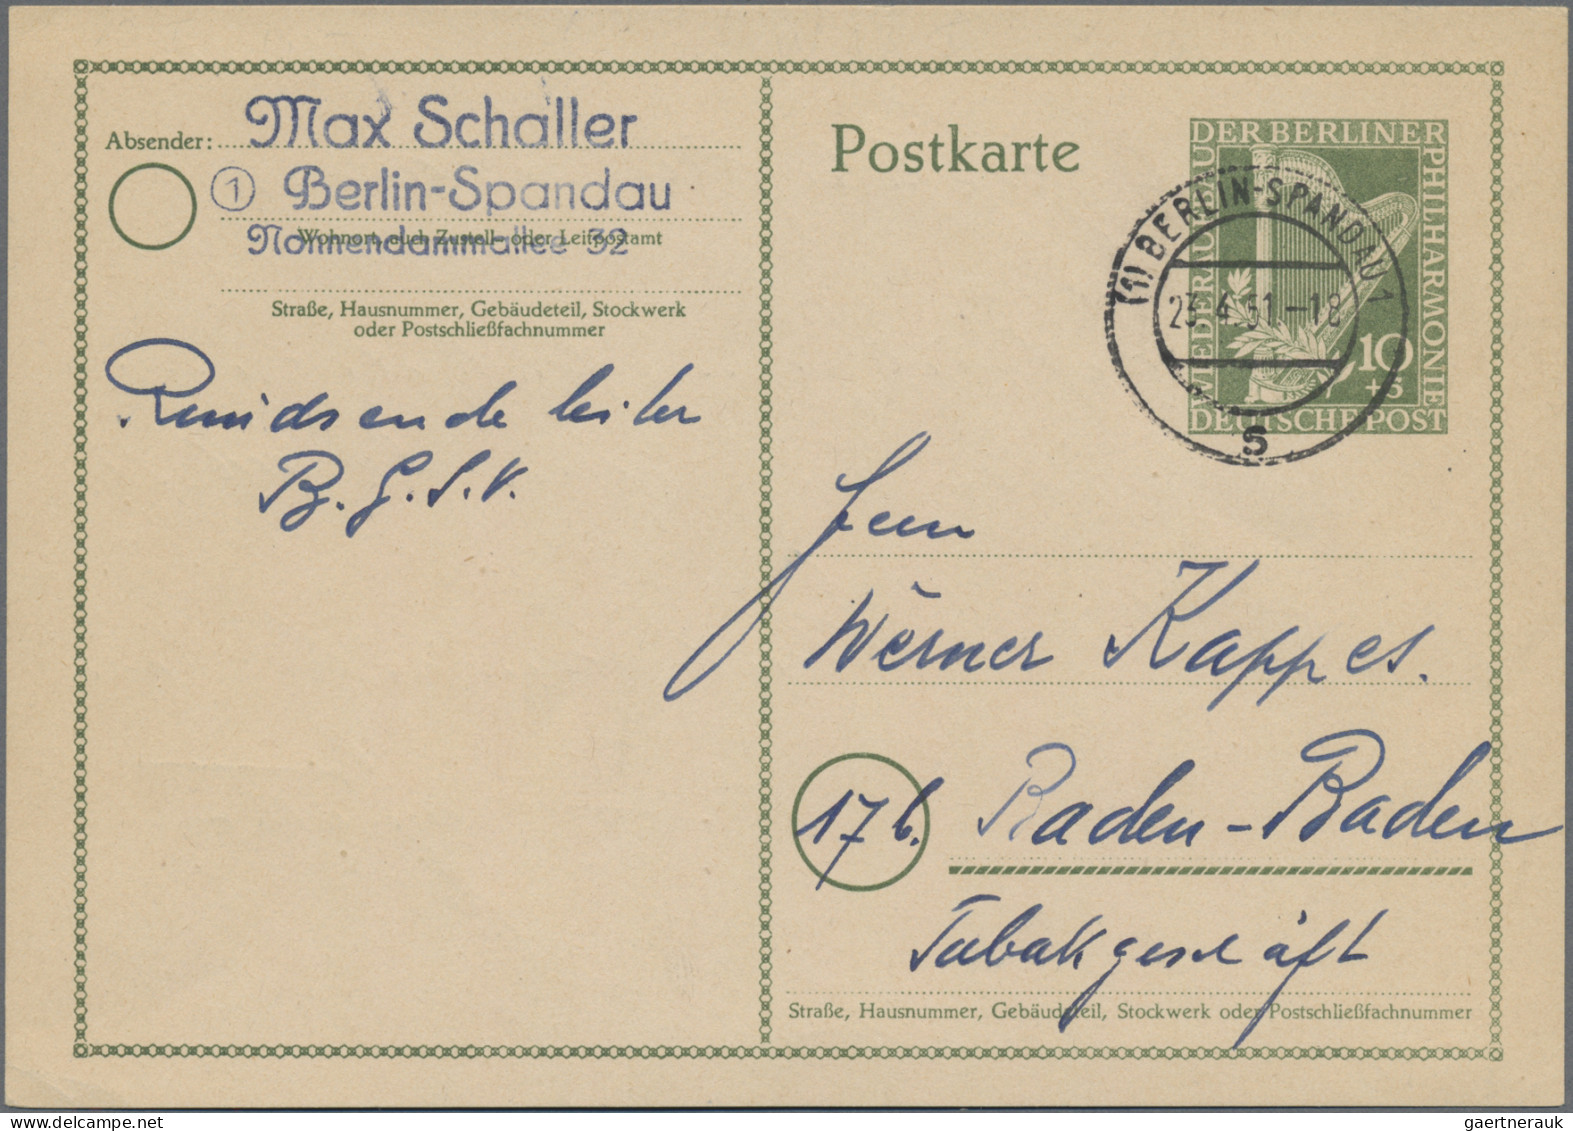 Absender: Max Schaller
1 Berlin-Spandau
Wohnort, auch Zustell- oder Leitpostamt
Nonnendammallee 32
Straße, Hausnummer, Gebäudeteil, Stockwerk
oder Postschließfachnummer
Rundsendeleiter
B.G.S.V.
Postkarte
WIEDERAUFBAU DER BERLINER PHILHARMONIE
10
+5
DEUTSCHE POST
(1) BERLIN-SPANDAU 1
23.4.51.-18
s
Herrn
Werner Kappes.
17b. Baden-Baden
Tabakgeschäft
Straße, Hausnummer, Gebäudeteil, Stockwerk oder Postschließfachnummer
gaertnerauk